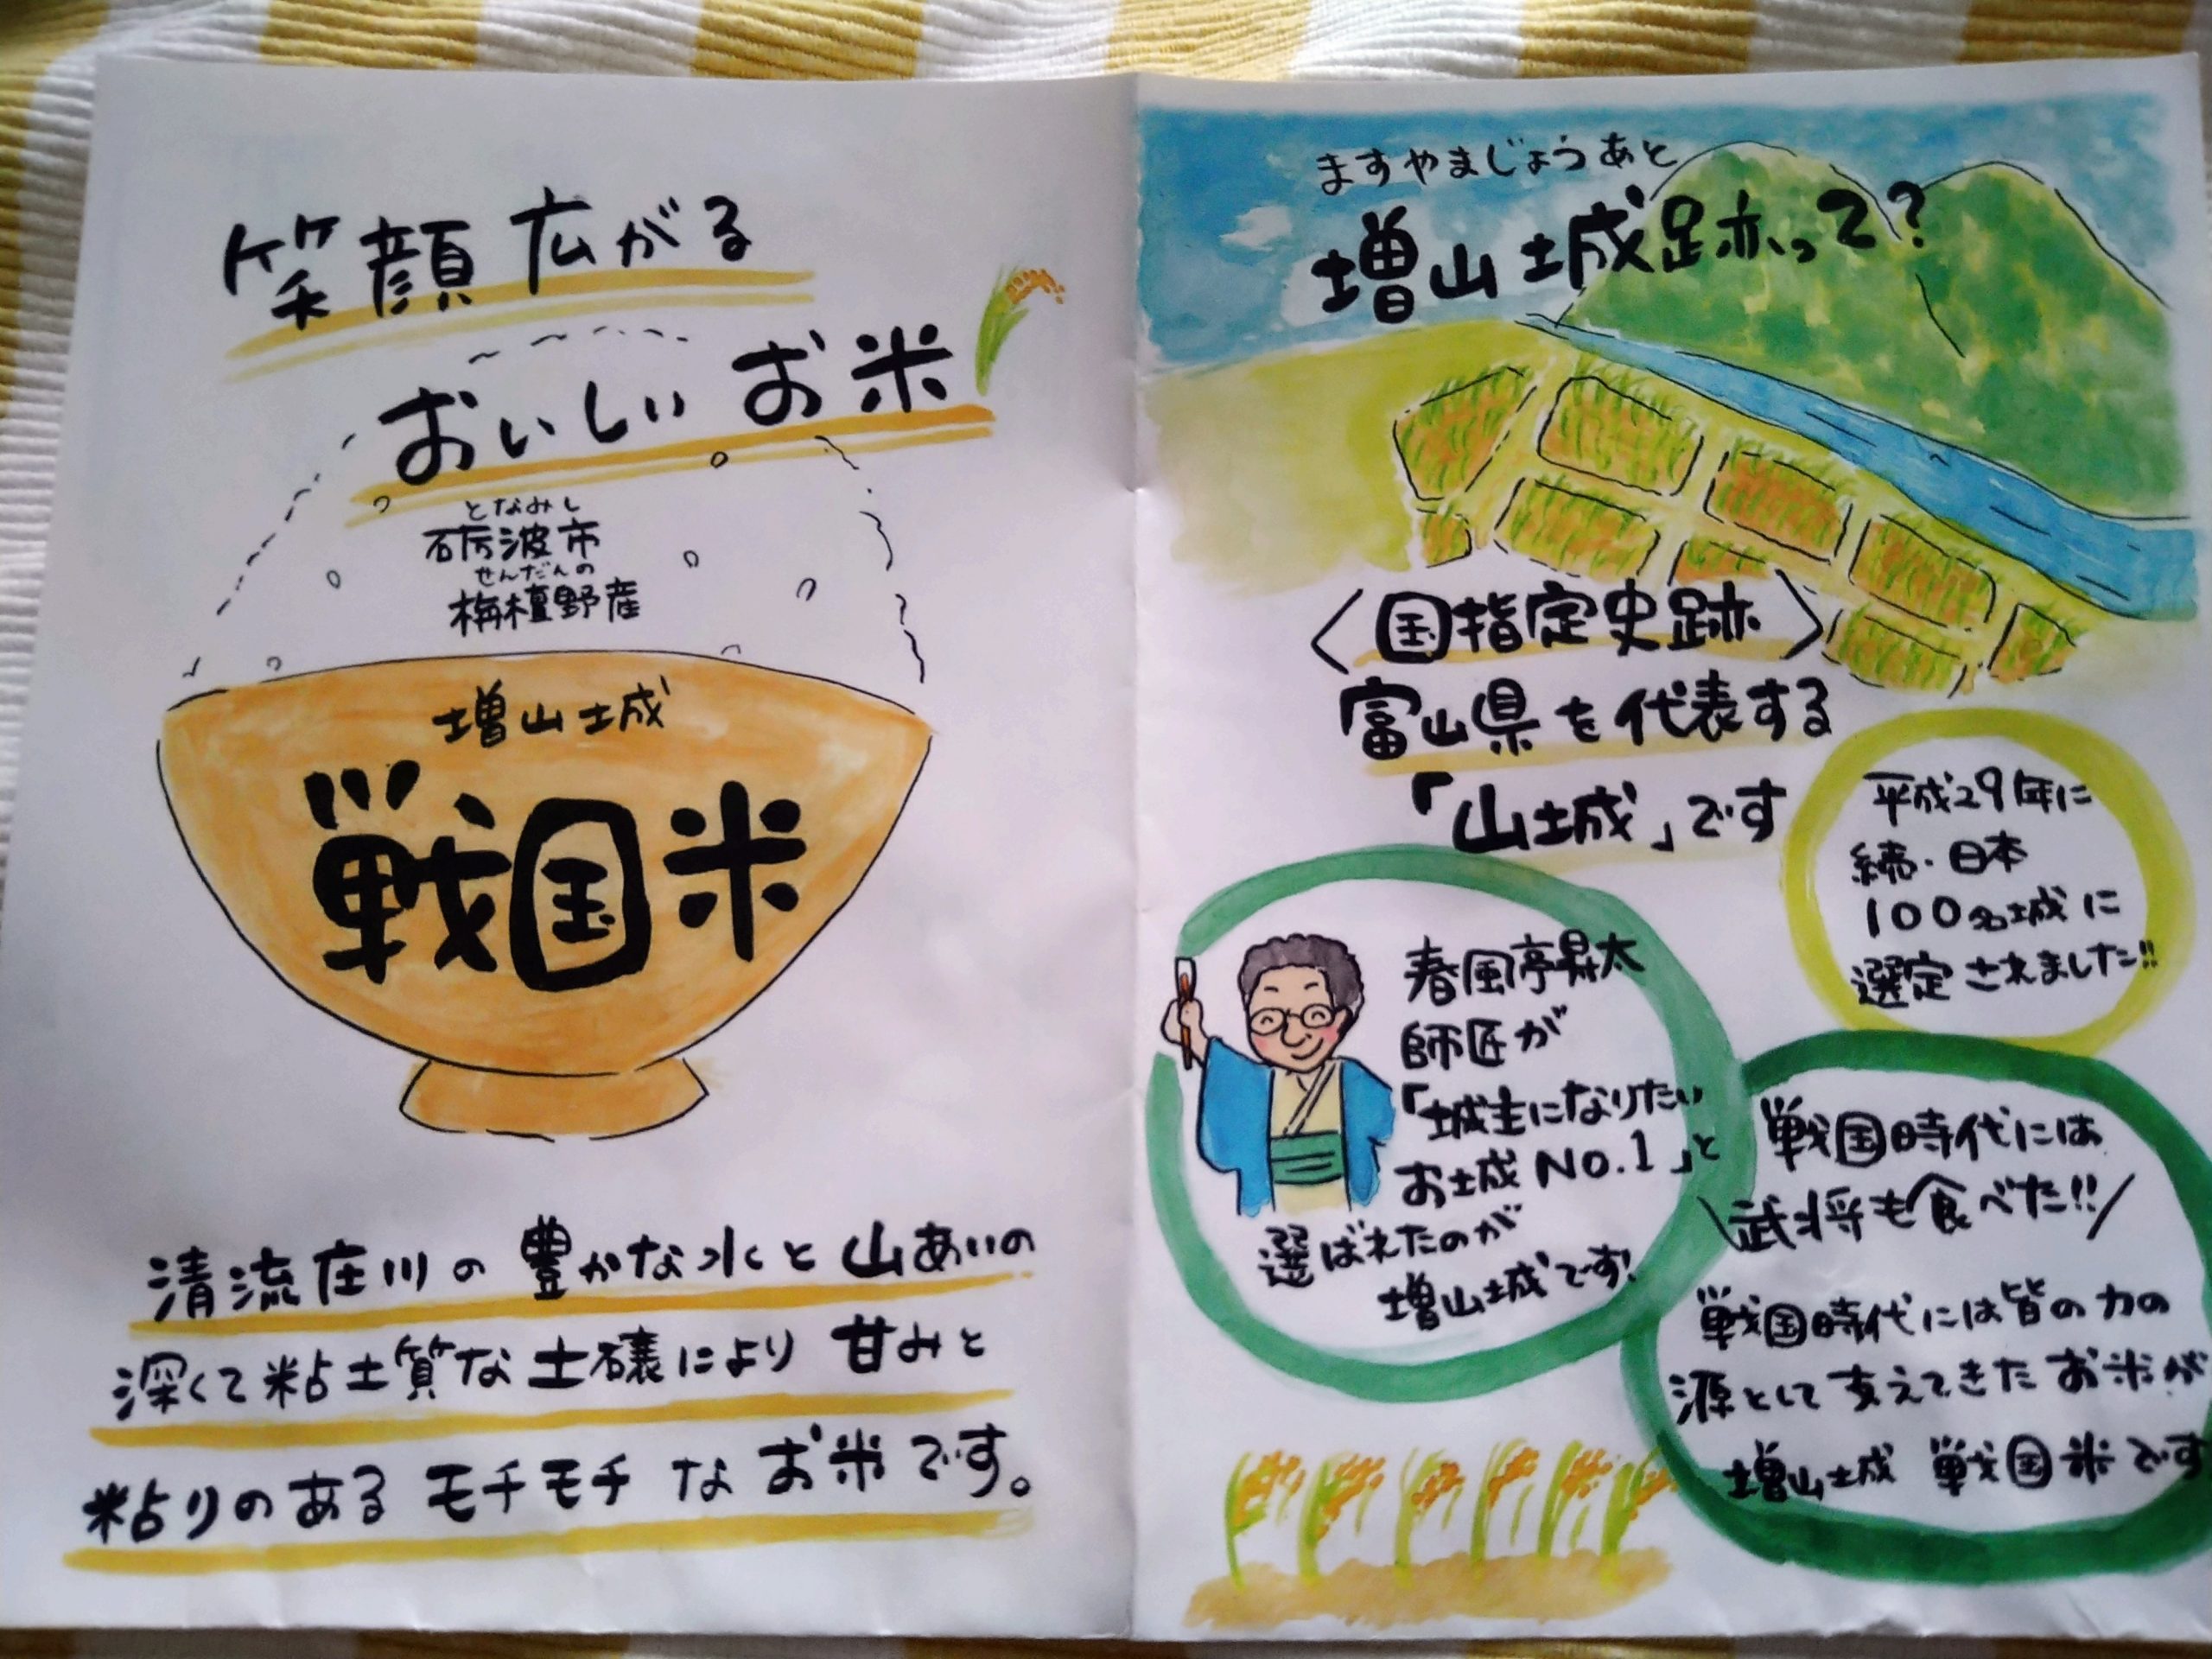 笑顔広がる
おいしいお米
となみし
砺波市
せんだんの
栴檀野産
増山城
戦国米
清流庄川の豊かな水と山あいの
深くて粘土質な土壌により甘みと
粘りのあるモチモチなお米です。
ますやまじょうあと
増山城跡って?
〈国指定史跡〉
富山県を代表する
「山城」です
平成29年に
続・日本
100名城に
選定されました!!
春風亭昇太
師匠が
「城主になりたい
お城No.1」と
選ばれたのが
増山城です!
戦国時代には
\武将も食べた!!/
戦国時代には皆の力の
源として支えてきたお米が
増山城 戦国米です